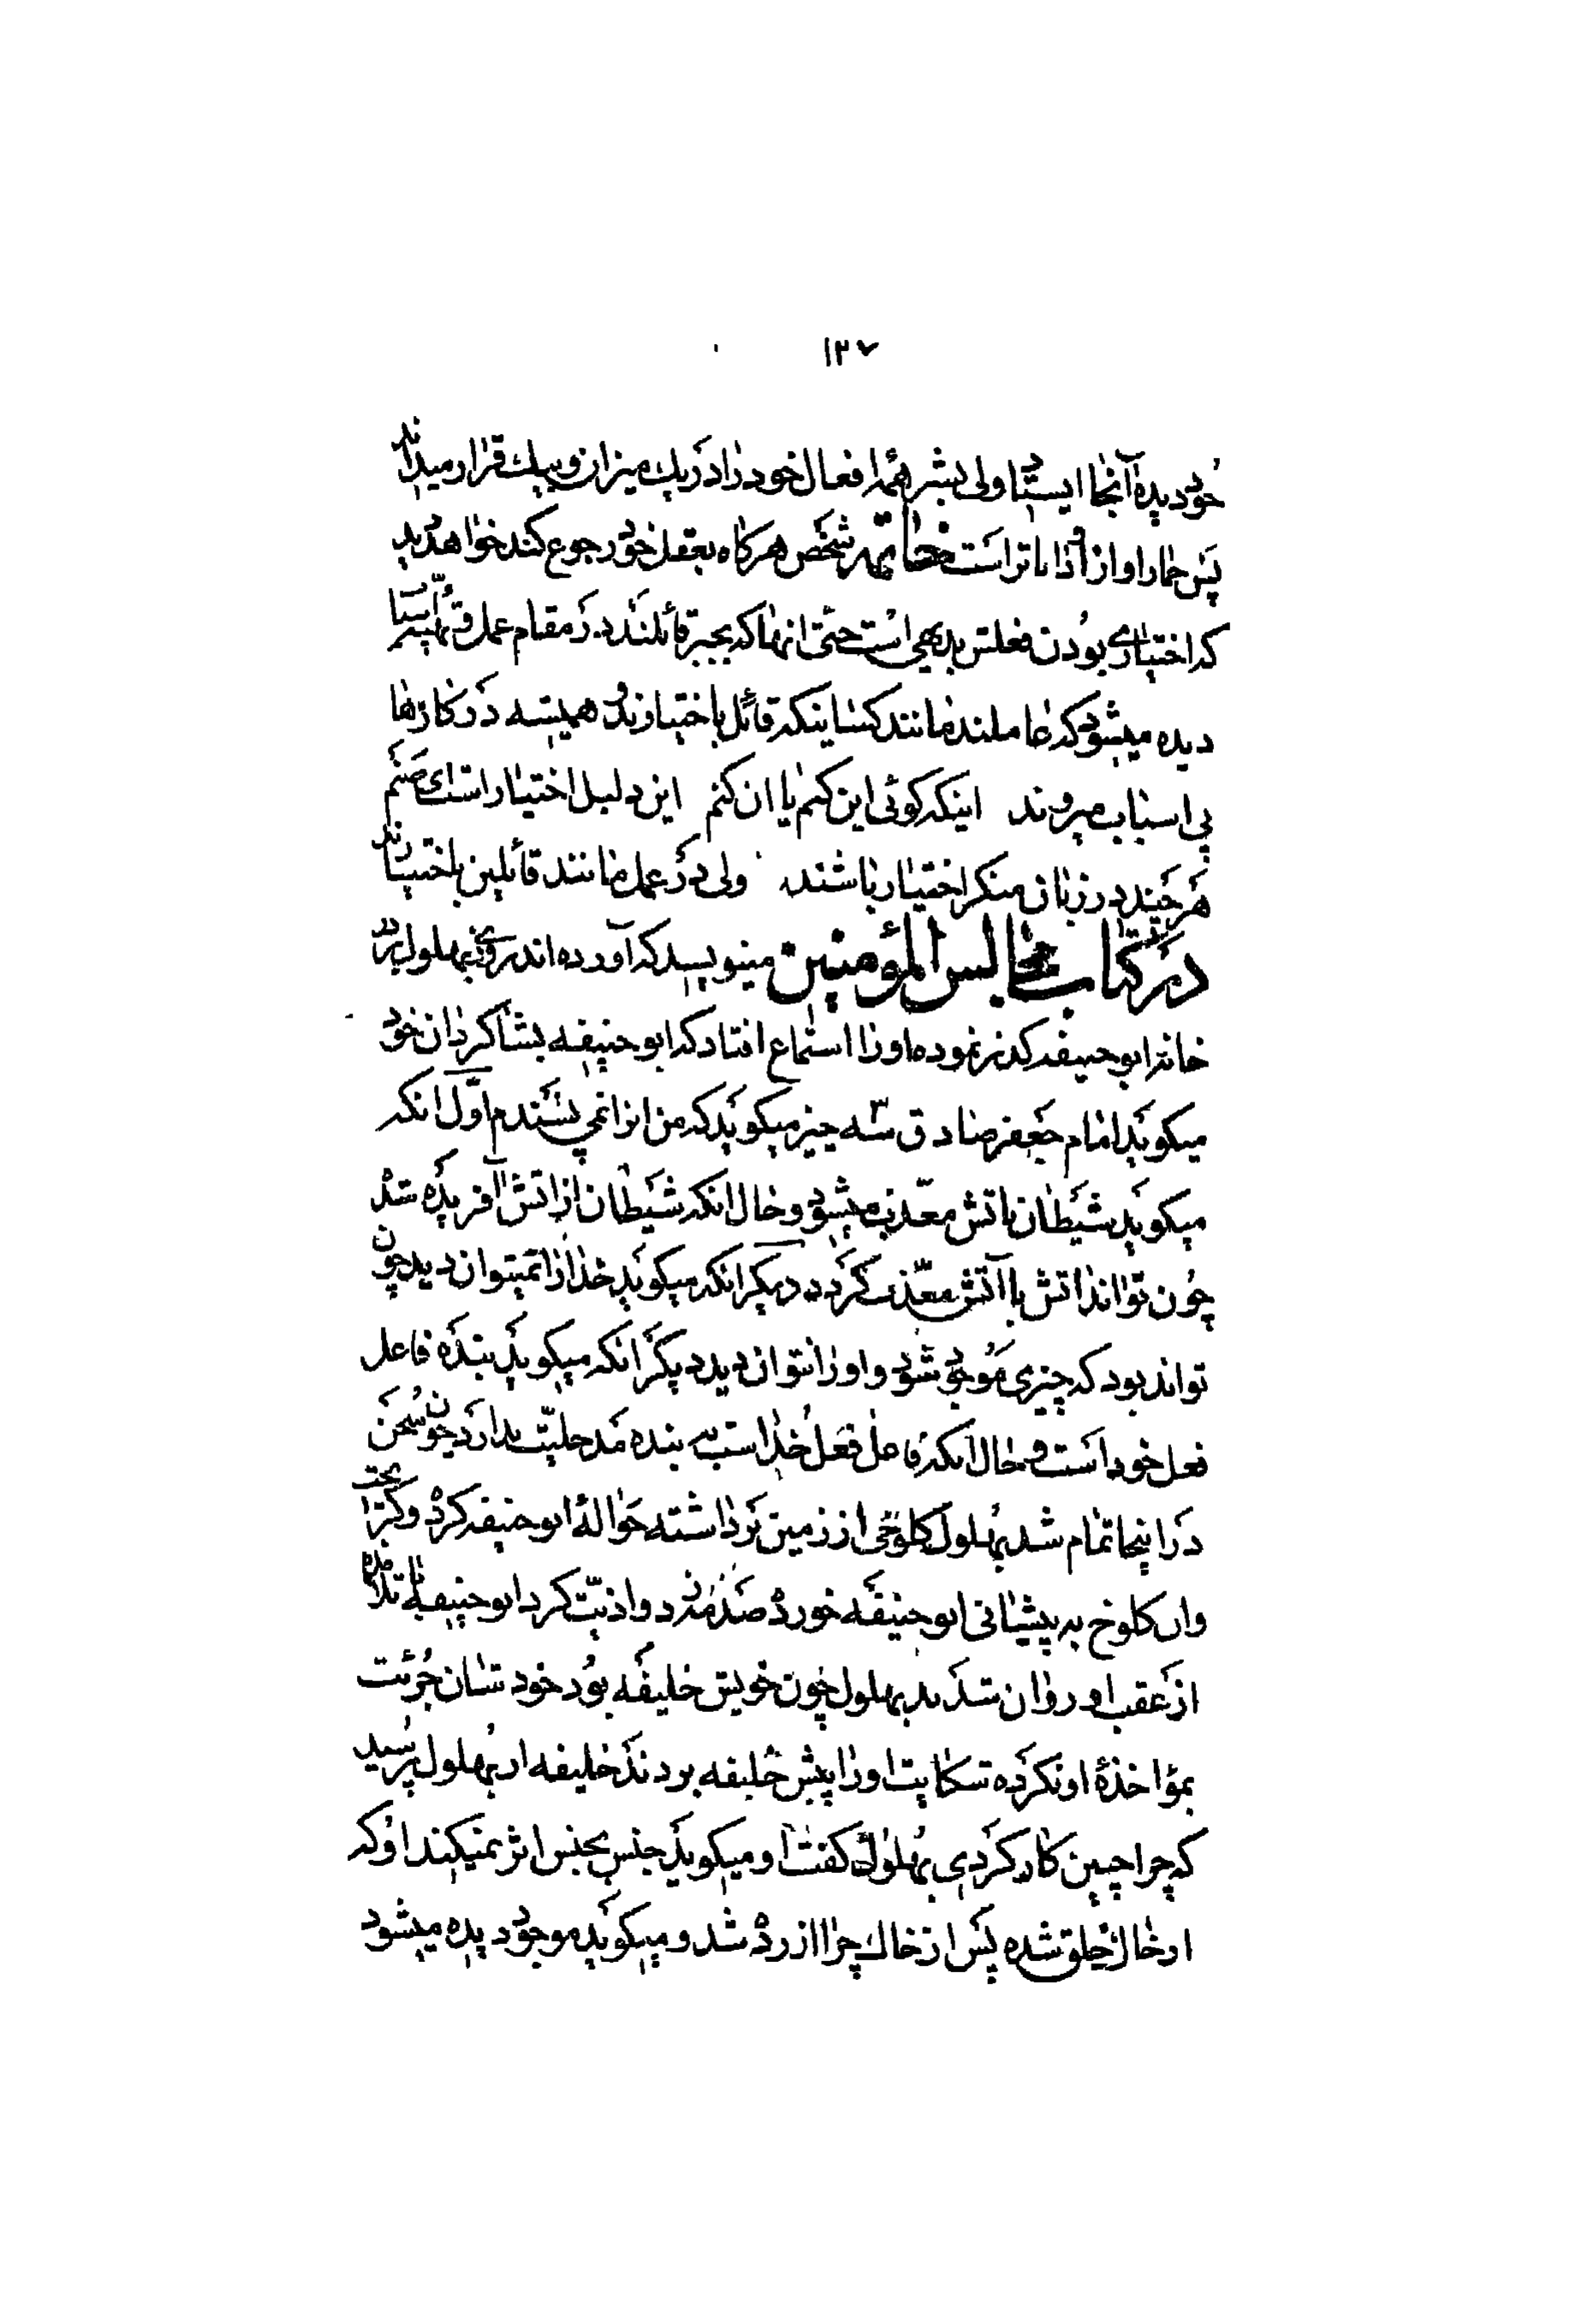 ۱۳۷
خود دیده آنجا ایستاد ولی بشر همه افعال خود را در یک میزان و سبک قرار میداند
پس حمار او از او داناتر است خطاتمه هر شخص هرگاه بعقل خود رجوع کند خواهد دید
که اختیاری بودن فعلش بدیهی است حتی انها که بجبر قائلند در مقام عمل
دیده میشود که عاملند مانند کسانیکه قائل باختیارند و همیشه در کارها
پی اسباب میروند اینکه گوئی این کنم یا ان کنم این دلیل اختیار است ای صنم
هر چند در زبان منکر اختیار باشند ولی در عمل مانند قائلین باختیارند
در کتاب مجالس المؤمنین مینویسد که آورده اند روزی بهلول بر در
خانه ابو حنیفه گذر نموده او را استماع افتاد که ابو حنیفه بشاگردان خود
میگوید امام جعفر صادق سه چیز میگوید که من انرا نمی پسندم اول انکه
میگوید شیطان باتش معذب میشود و حال انکه شیطان از اتش آفریده شده
چون تواند اتش با آتش معذب گردد دیگر انکه میگوید خدا را نمیتوان دید چون
تواند بود که چیزی موجود شود و او را نتوان دید دیگر انکه میگوید بنده فاعل
فعل خود است و حال انکه فاعل فعل خدا است بنده مدخلیت ندارد چون سخن
در اینجا تمام شد بهلول کلوخی از زمین برداشته حواله ابو حنیفه کرد و گریخت
وان کلوخ به پیشانی ابو حنیفه خورد صدمه زد و اذیت کرد ابو حنیفه با تلامذه
از عقب او روان شدند بهلول چون خویش خلیفه بود خودشان جرئت
بمؤاخذۀ او نکرده شکایت او را پیش خلیفه بردند خلیفه از بهلول پرسید
که چرا چنین کار کردی بهلول گفت او میگوید جنس بجنس اثر نمیکند او که
از خاک خلق شده پس از خاک چرا ازرده شد و میگوید موجود دیده میشود